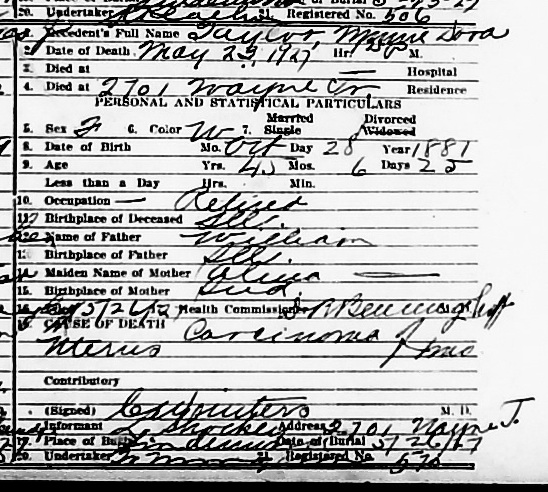 20. Undertaker 21. Registered No. 506
1. Decedent's Full Name Taylor, Minnie Dora
2. Date of Death May 23, 1927 Hr. M.
3. Died at — Hospital
4. Died at 2701 Wayne Residence
PERSONAL AND STATISTICAL PARTICULARS
5. Sex F 6. Color W 7. Married Single Divorced Widowed
8. Date of Birth Mo. Oct Day 28 Year 1881
9. Age Yrs. 45 Mos. 6 Days 25
Less than a Day Hrs. Min.
10. Occupation — Retired
11. Birthplace of Deceased Ill.
12. Name of Father William
13. Birthplace of Father Ill.
14. Maiden Name of Mother —
15. Birthplace of Mother Ind.
5/26/27 Health Commissioner
CAUSE OF DEATH Carcinoma of
Uterus
Contributory
(Signed) M. D.
Informant Address 2701 Wayne
Place of Burial Date of Burial 5/26/27
20. Undertaker 21. Registered No. 570